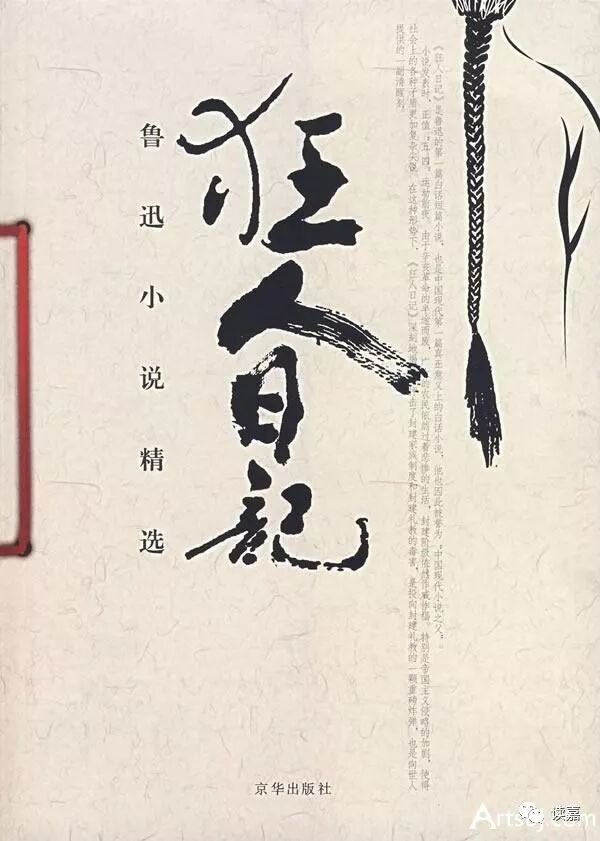 狂人日記
鲁迅小说精选
《狂人日记》是鲁迅的第一篇白话短篇小说，也是中国现代第一篇真正意义上的白话小说，他也因此被誉为“中国现代小说之父”。
小说发表时，正值“五·四”运动前夜，由于辛亥革命的半途而废，广的农民依然过着悲惨的生活，封建阶级依然作威作福。特别是帝国主义侵略的加剧，使得
社会上的各种矛盾更加复杂尖锐。在这种形势下，《狂人日记》深刻地击了封建家族制度和封建礼教的毒害，是投向封建礼教的一颗重磅炸弹，也是向世人
提供的一副清醒剂
京华出版社
读嘉